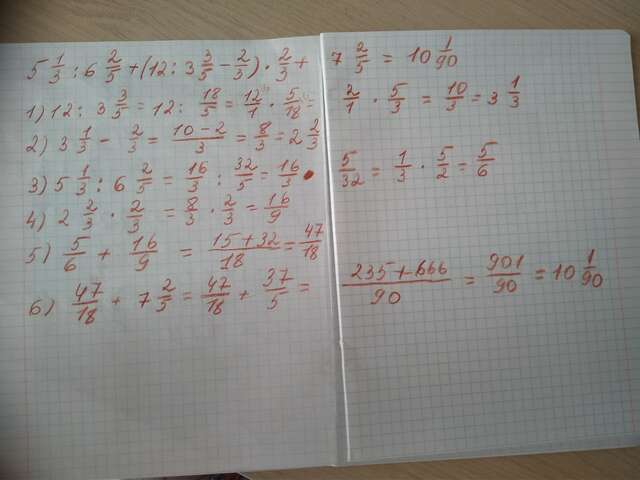 5 1/3 : 6 2/5 + (12 : 3 3/5 - 2/3) · 2/3 + 7 2/5 = 10 1/90
1) 12 : 3 3/5 = 12 : 18/5 = 12/1 · 5/18 = 2/1 · 5/3 = 10/3 = 3 1/3
2) 3 1/3 - 2/3 = 10-2/3 = 8/3 = 2 2/3
3) 5 1/3 : 6 2/5 = 16/3 : 32/5 = 16/3 · 5/32 = 1/3 · 5/2 = 5/6
4) 2 2/3 · 2/3 = 8/3 · 2/3 = 16/9
5) 5/6 + 16/9 = 15+32/18 = 47/18
6) 47/18 + 7 2/5 = 47/18 + 37/5 = 235+666/90 = 901/90 = 10 1/90